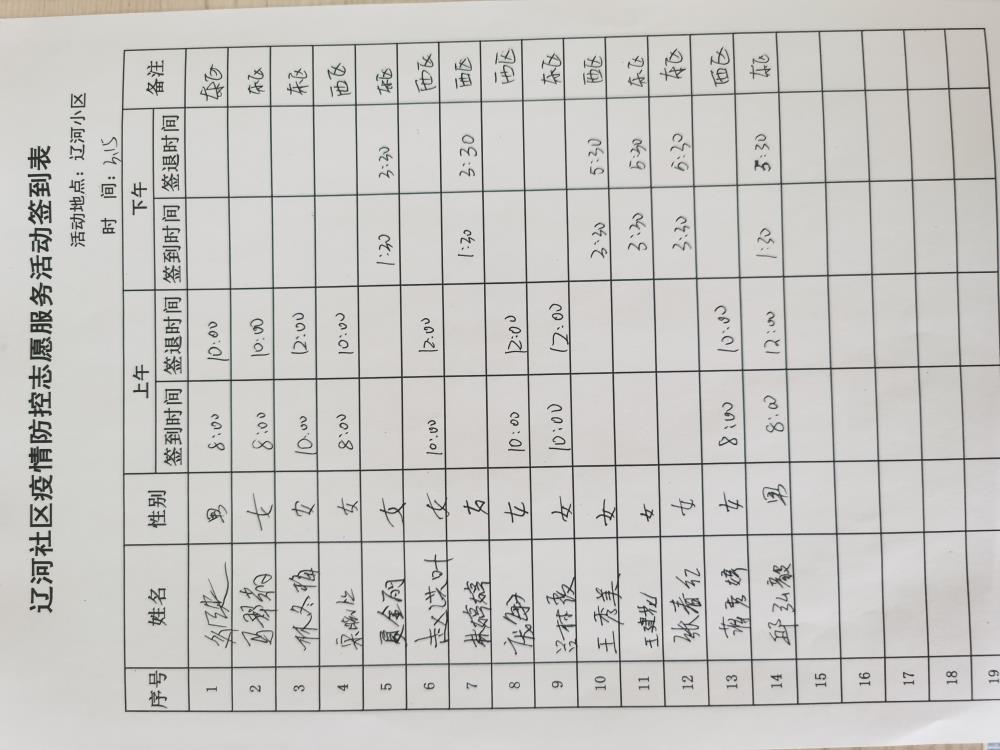 辽河社区疫情防控志愿服务活动签到表
活动地点：辽河小区
时 间：3.15
序号 姓名 性别 上午 下午 备注
签到时间 签退时间 签到时间 签退时间
1 男 8:00 10:00 东区
2 女 8:00 10:00 东区
3 林冬梅 女 10:00 12:00 东区
4 女 8:00 10:00 西区
5 夏金雨 女 1:30 3:30 东区
6 赵洪叶 女 10:00 12:00 西区
7 林婷婷 女 1:30 3:30 西区
8 女 10:00 12:00 西区
9 女 10:00 12:00 东区
10 王秀美 女 3:30 5:30 西区
11 王建芝 女 3:30 5:30 东区
12 张春红 女 3:30 5:30 东区
13 蒋秀娉 女 8:00 10:00 西区
14 邱弘毅 男 8:00 12:00 1:30 5:30 东区
15
16
17
18
19